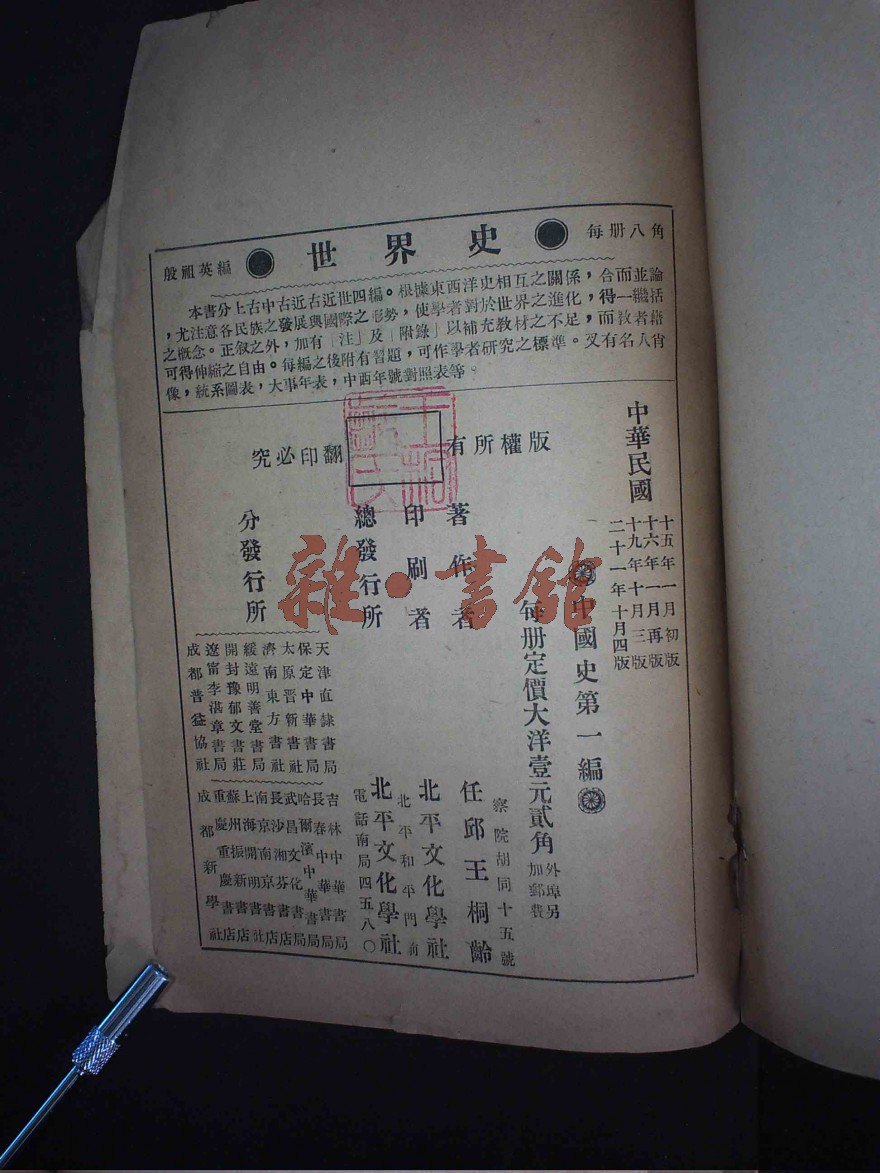 每册八角 世界史 殷祖英編
本書分上古中古近古近世四編。根據東西洋史相互之關係，合而並論
，尤注意各民族之發展與國際之形勢，使學者對於世界之進化，得一概括
之概念。正叙之外，加有「注」及「附錄」以補充教材之不足，而教者藉
可得伸縮之自由。每編之後附有習題，可作學者研究之標準。又有名人肖
像，統系圖表，大事年表，中西年號對照表等。
中華民國
十五年一月初版
十六年一月再版
十九年十月三版
二十一年十月四版
中國史第一編
每册定價大洋壹元貳角
外埠另
加郵費
版權所有
翻印必究
著作者 任邱王桐齡
察院胡同十五號
印刷者 北平文化學社
北平和平門前
總發行所 北平文化學社
電話南局四五八〇
分發行所
天津直隷書局
保定中華書局
太原晋新書社
濟南東方書社
綏遠明善堂局
開封豫郁文書莊
遼甯李湛章書局
成都普益協社
吉林中華書局
長春中華書局
哈爾濱中華書局
武昌文化書局
長沙湘芬書店
南京南京書店
上海開明書店
蘇州振新書社
重慶重慶書店
成都新學社
雜·書館